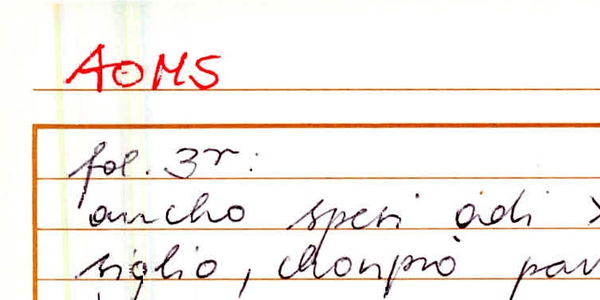 AOMS
fol. 3r:
ancho spesi adi
siglio, chonprò